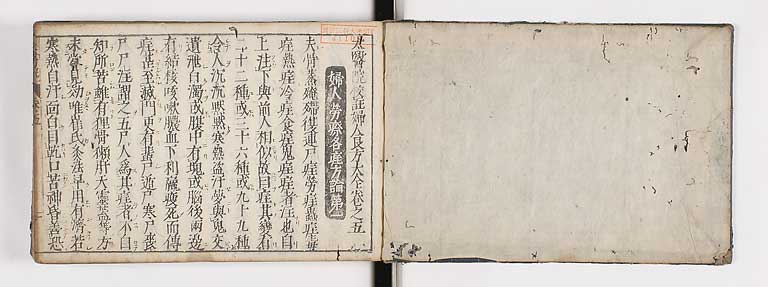 太醫院校註婦人良方大全卷之五
婦人勞瘵各疰方論第一
夫骨蒸殗殜復連尸疰勞疰蟲疰毒
疰熱疰冷疰食疰鬼疰疰者注也自
上注下與前人相似故曰疰其變有
二十二種或三十六種或九十九種
令人沉沉默默寒熱盜汗夢與鬼交
遺泄白濁或腹中有塊或腦後兩邊
有結核咳嗽膿血下利羸瘦死而傳
疰甚至滅門更有蜚尸遁尸寒尸喪
尸尸注謂之五尸人爲其疰者不自
知所苦雖有狸骨獺肝天靈蓋等方
未嘗見効唯崔氏灸法早用有濟若
寒熱自汗面白目乾口苦神昏善恐